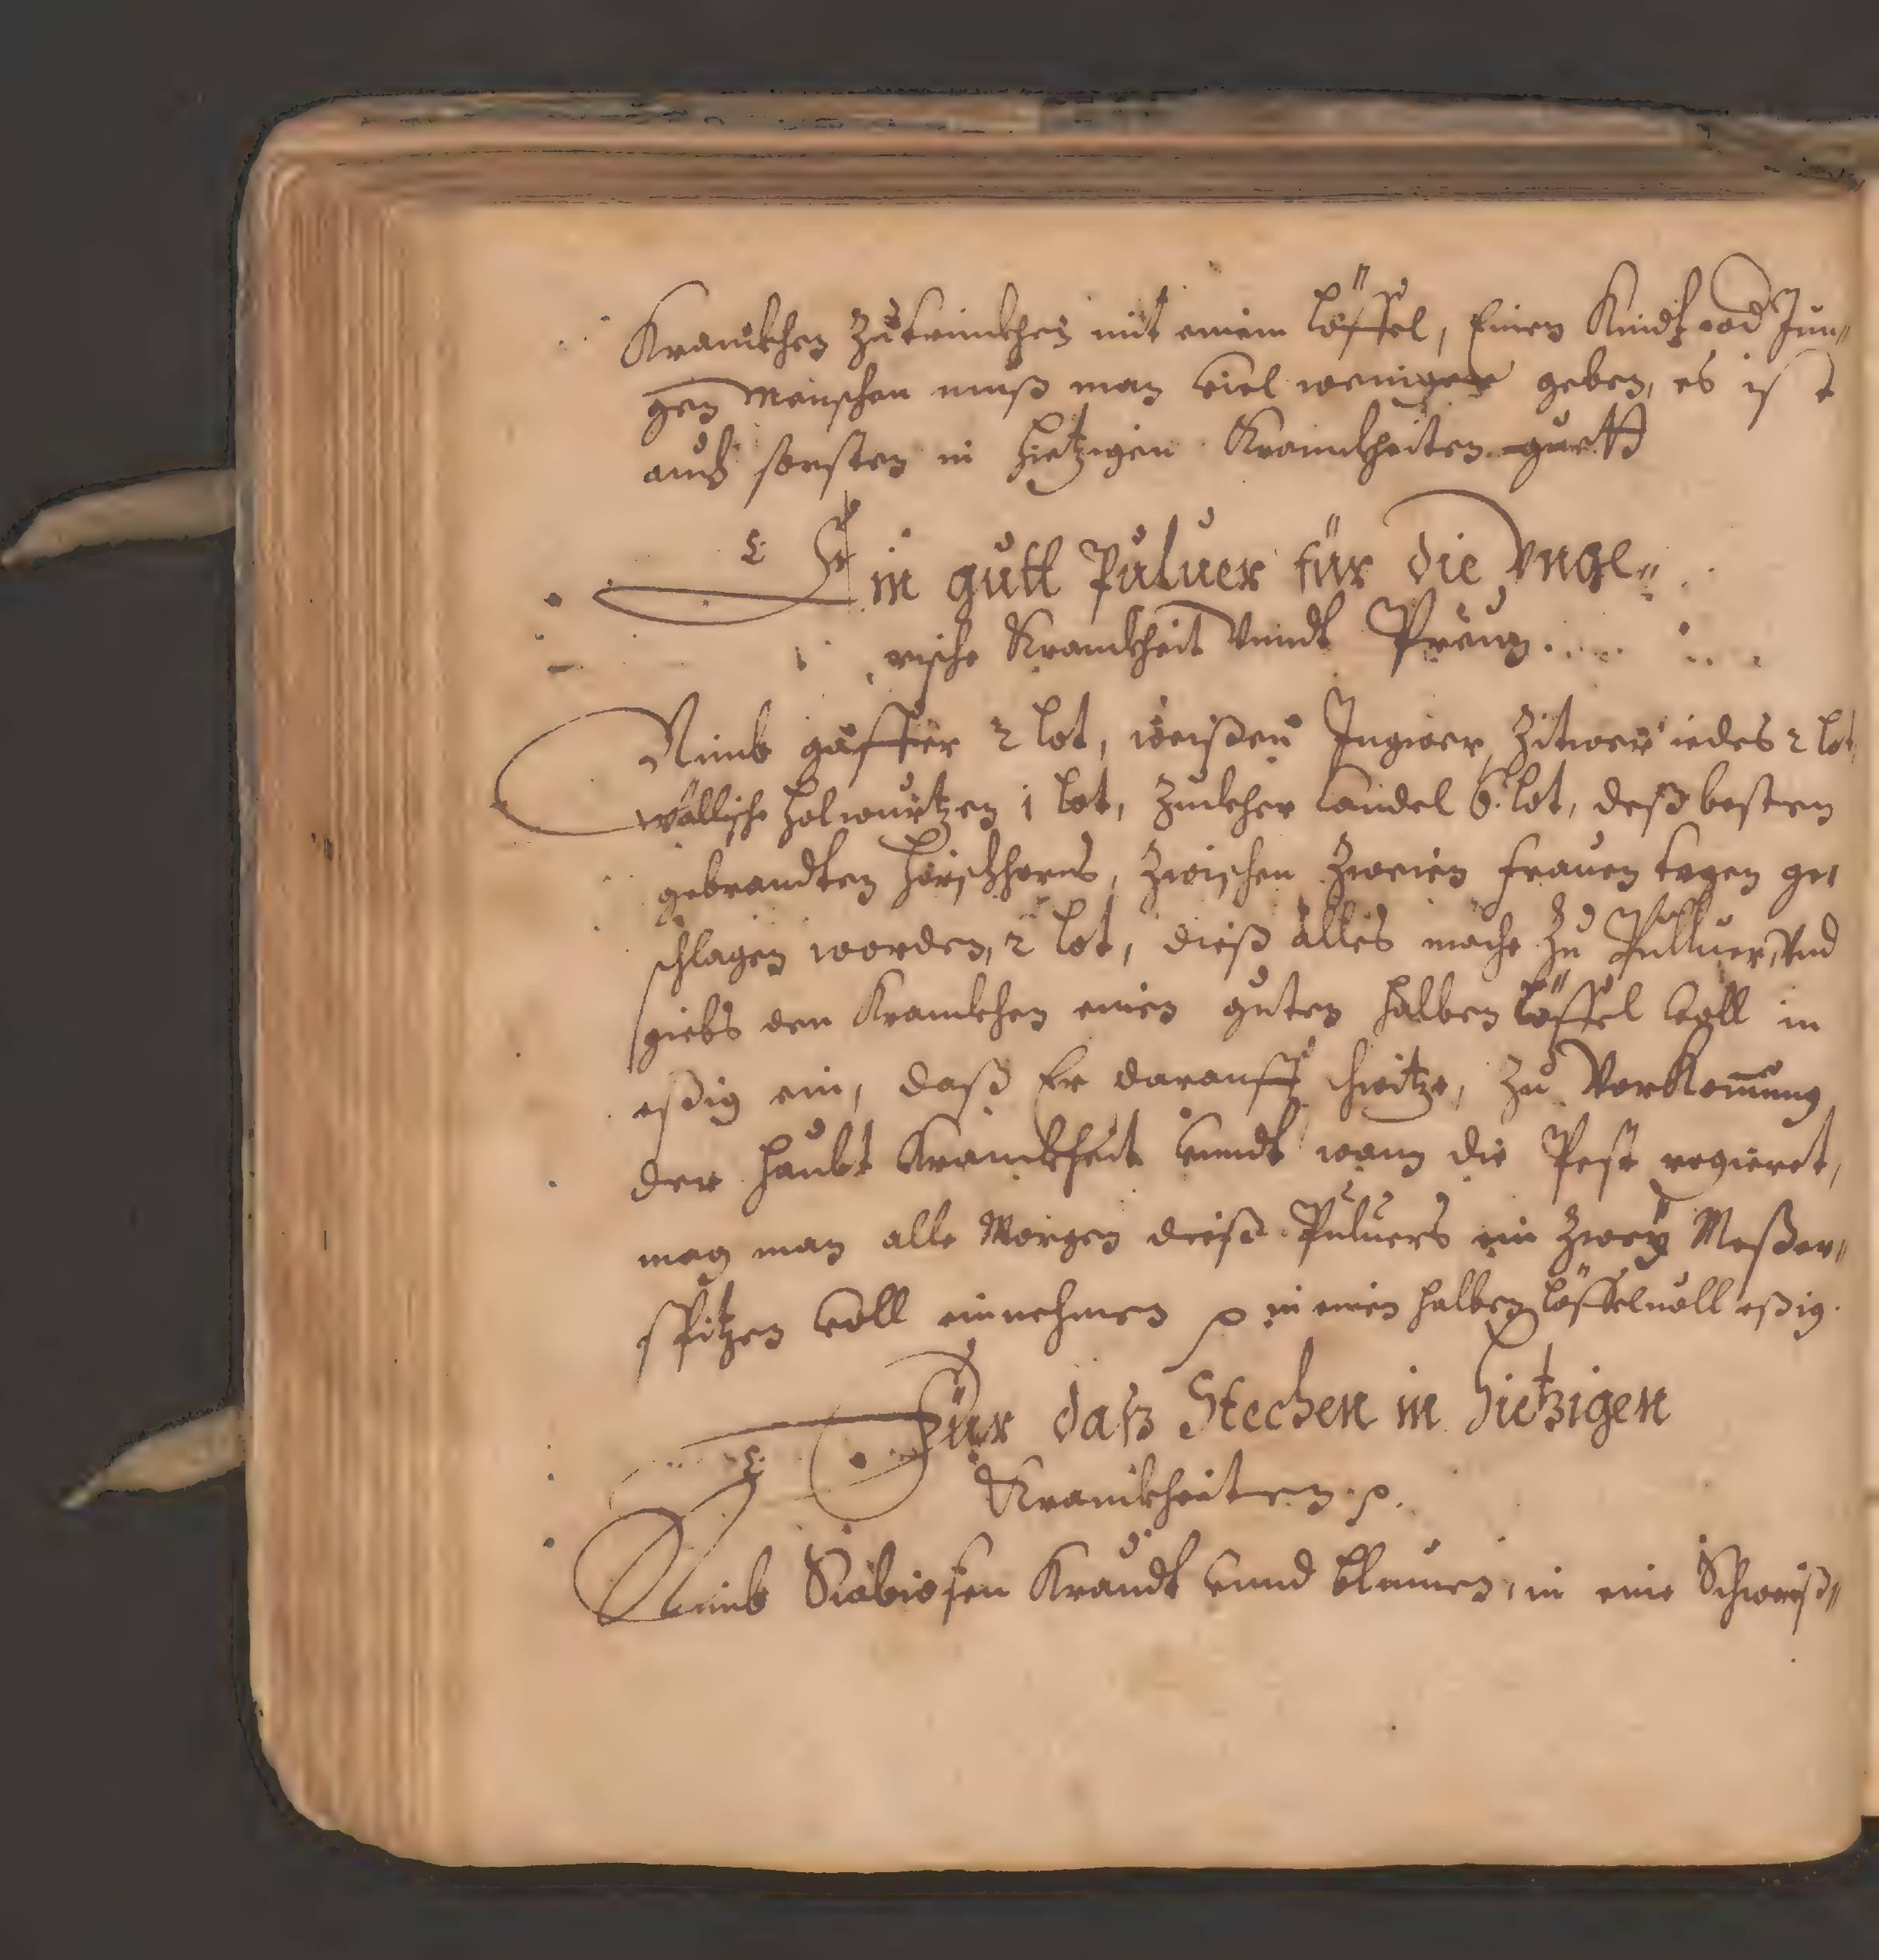 Kranckhen zutrinckhen mit einem löffel, Einen Kindt od Jun„
gen Menschen muß man viel weniger geben, es ist
auch sonsten in hietzigen Kranckheiten guett
Ein gutt Puluer für die Vnge„
rische Kranckheit Vnndt Preun
Nimb gaffer 2 lot, weißen Ingwer, Zitwer iedes 2 lot,
wällische holwurtzen 1 lot, Zuckher Candel 6. lot, deß besten
gebrandten hirschhorns, zwischen zweien frauen tagen ge„
schlagen worden, 2 lot, dieß alles mache zu Pulluer, Vnd
giebs den Kranckhen einen guten halben löffel voll in
eßig ein, daß Er darauff schwitze, zu VorKomung
der haubt Kranckheit vnndt wann die Pest regieret,
mag man alle Morgen dieß Puluers ein zwey Meßer„
spitzen voll einnehmen in einen halben löffeluoll eßig.
Für daß Stechen in hietzigen
Kranckheiten
Nimb Scabiosen Kraudt vnnd bluemen, in eine Schweiß„